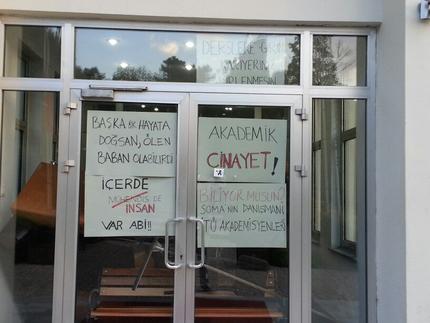 DERSLERE GİRİN
KARİYERİN
İRLENMESİN
BAŞKA BİR HAYATA
DOĞSAN, ÖLEN
BABAN OLABİLİRDİ
AKADEMİK
CİNAYET!
İÇERDE
MÜHENDİS DE
İNSAN
VAR ABİ!!
BİLİYOR MUSUN?
SOMA'NIN DANIŞMANI
İTÜ AKADEMİSYENLERİ